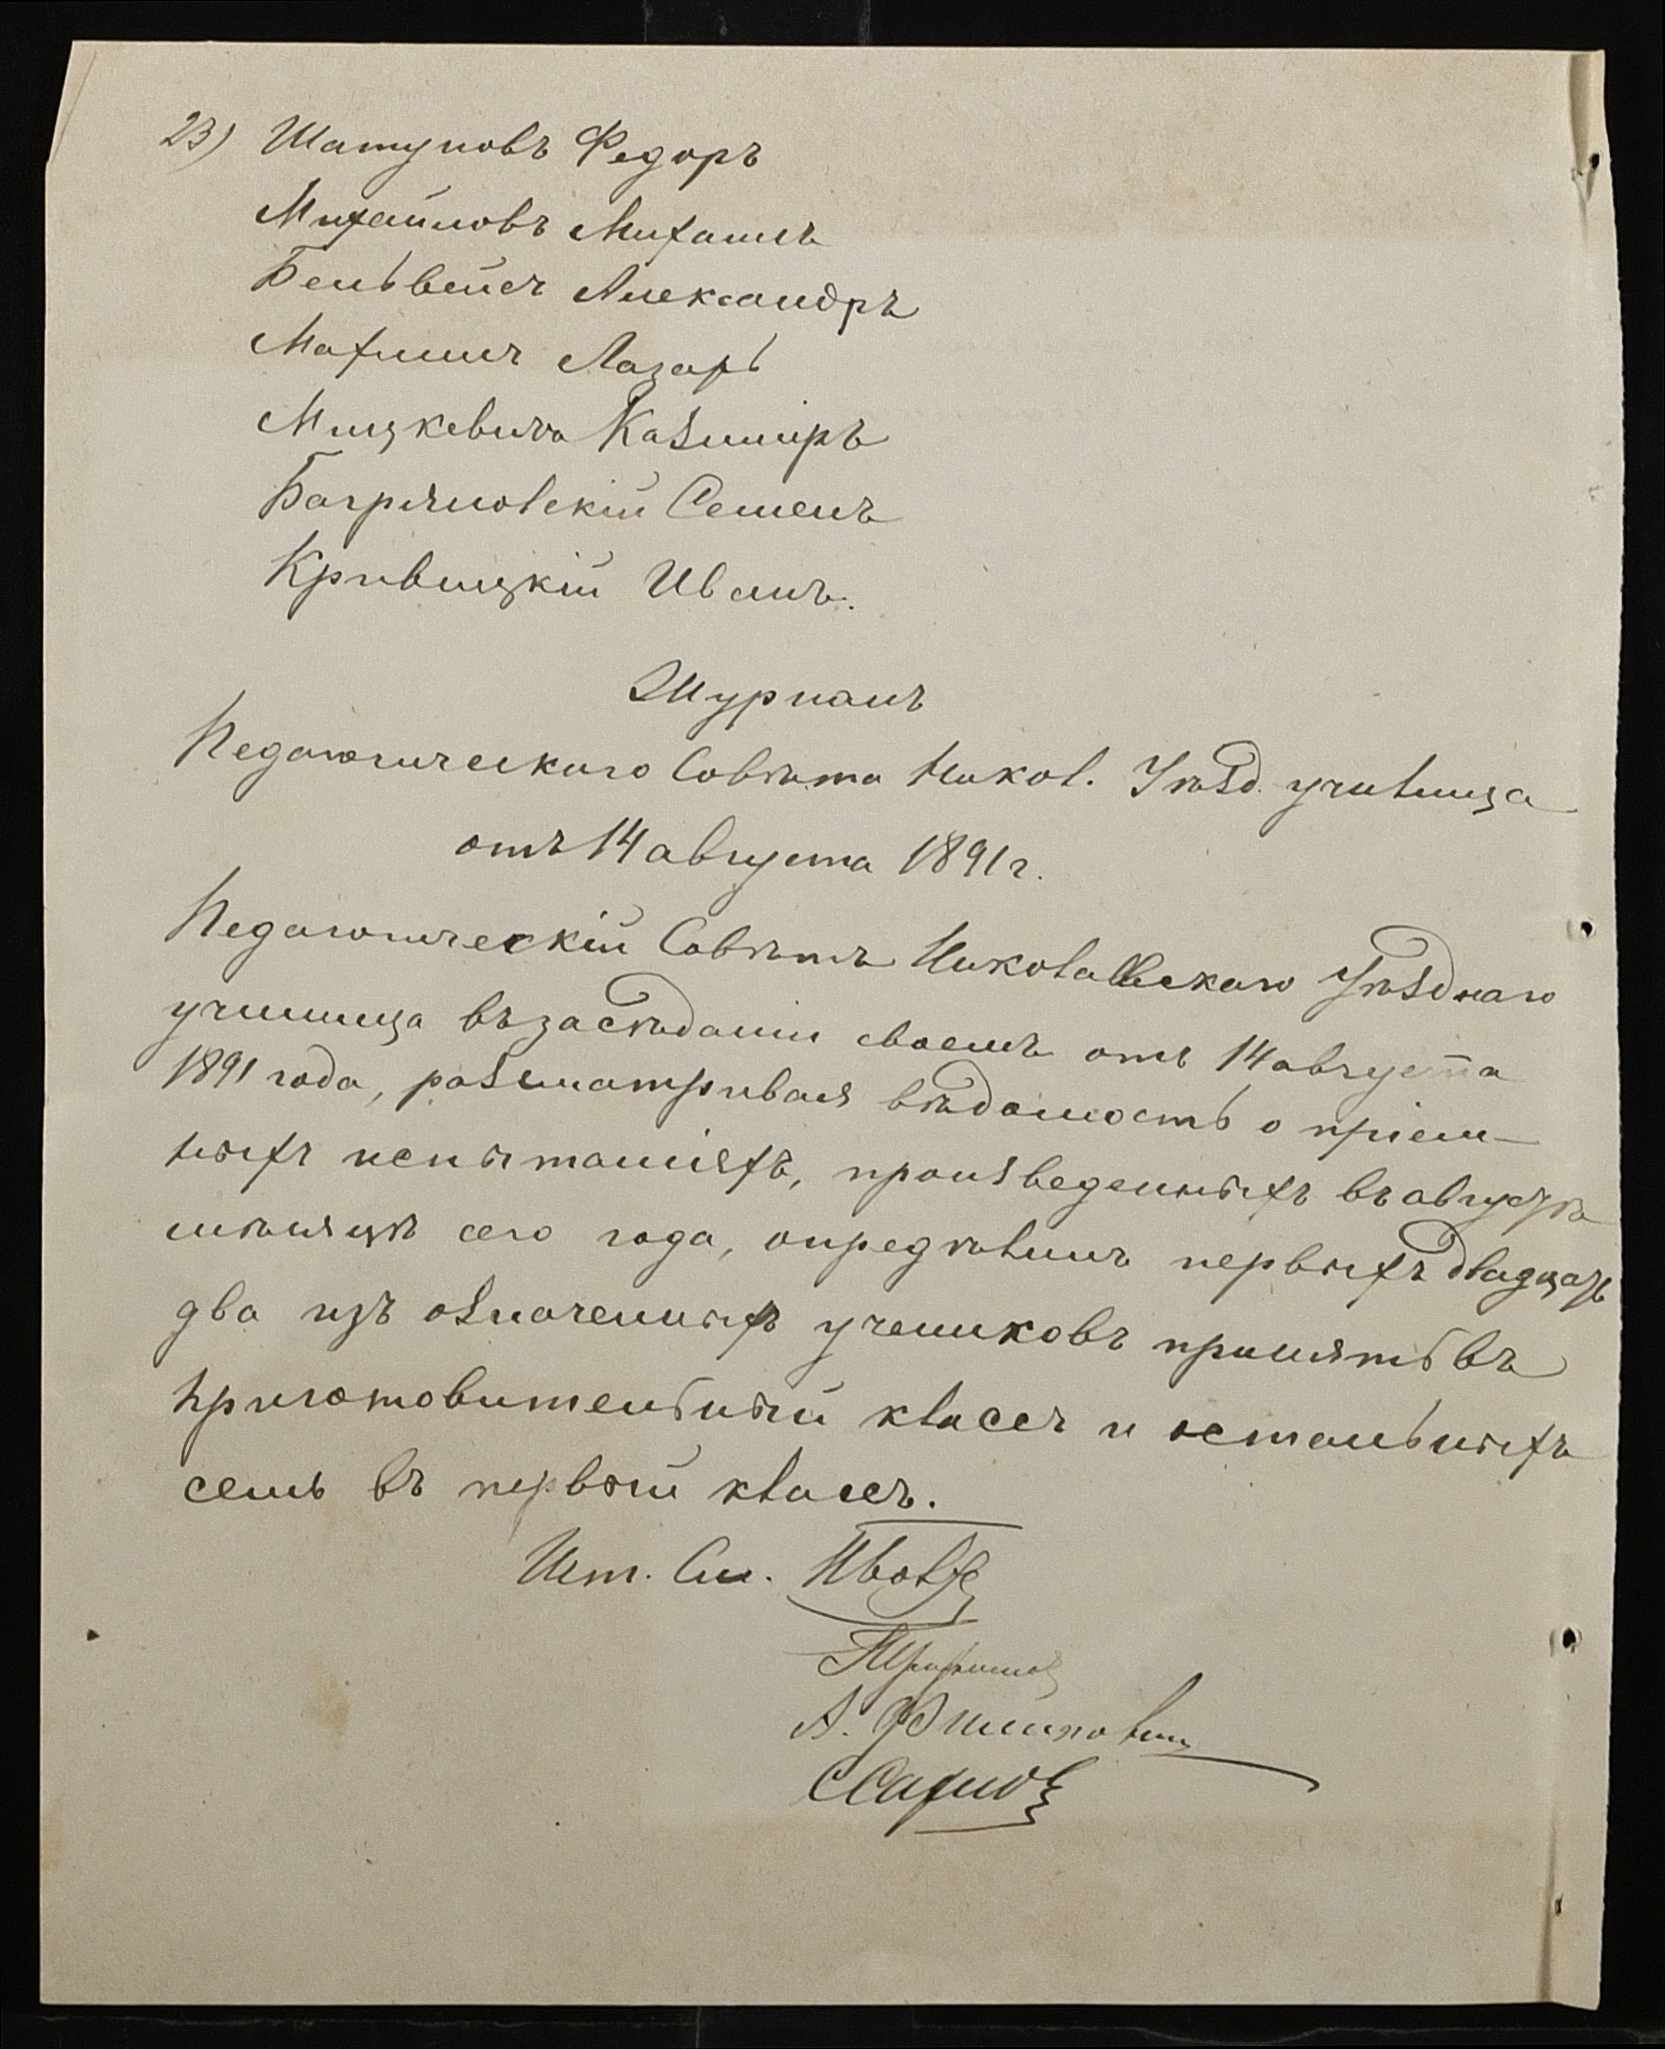 23) Шатуновъ Федоръ
Михайловъ Михаилъ
Беньвейсъ Александръ
Махлинъ Лазарь
Мицкевичъ Казиміръ
Багряновскій Семенъ
Кривицкій Иванъ.
Журналъ
Педагогическаго Совѣта Никол. Уѣзд. училища
отъ 14 августа 1891 г.
Педагогическій Совѣтъ Николаевскаго Уѣзднаго
училища въ засѣданіи своемъ отъ 14 августа
1891 года, разсматривая вѣдомость о пріем-
ныхъ испытаніяхъ, произведенныхъ въ августѣ
мѣсяцѣ сего года, опредѣлилъ первыхъ двадцать
два изъ означенныхъ учениковъ принять въ
приготовительный классъ и остальныхъ
семь въ первый классъ.
Шт. См.
А.